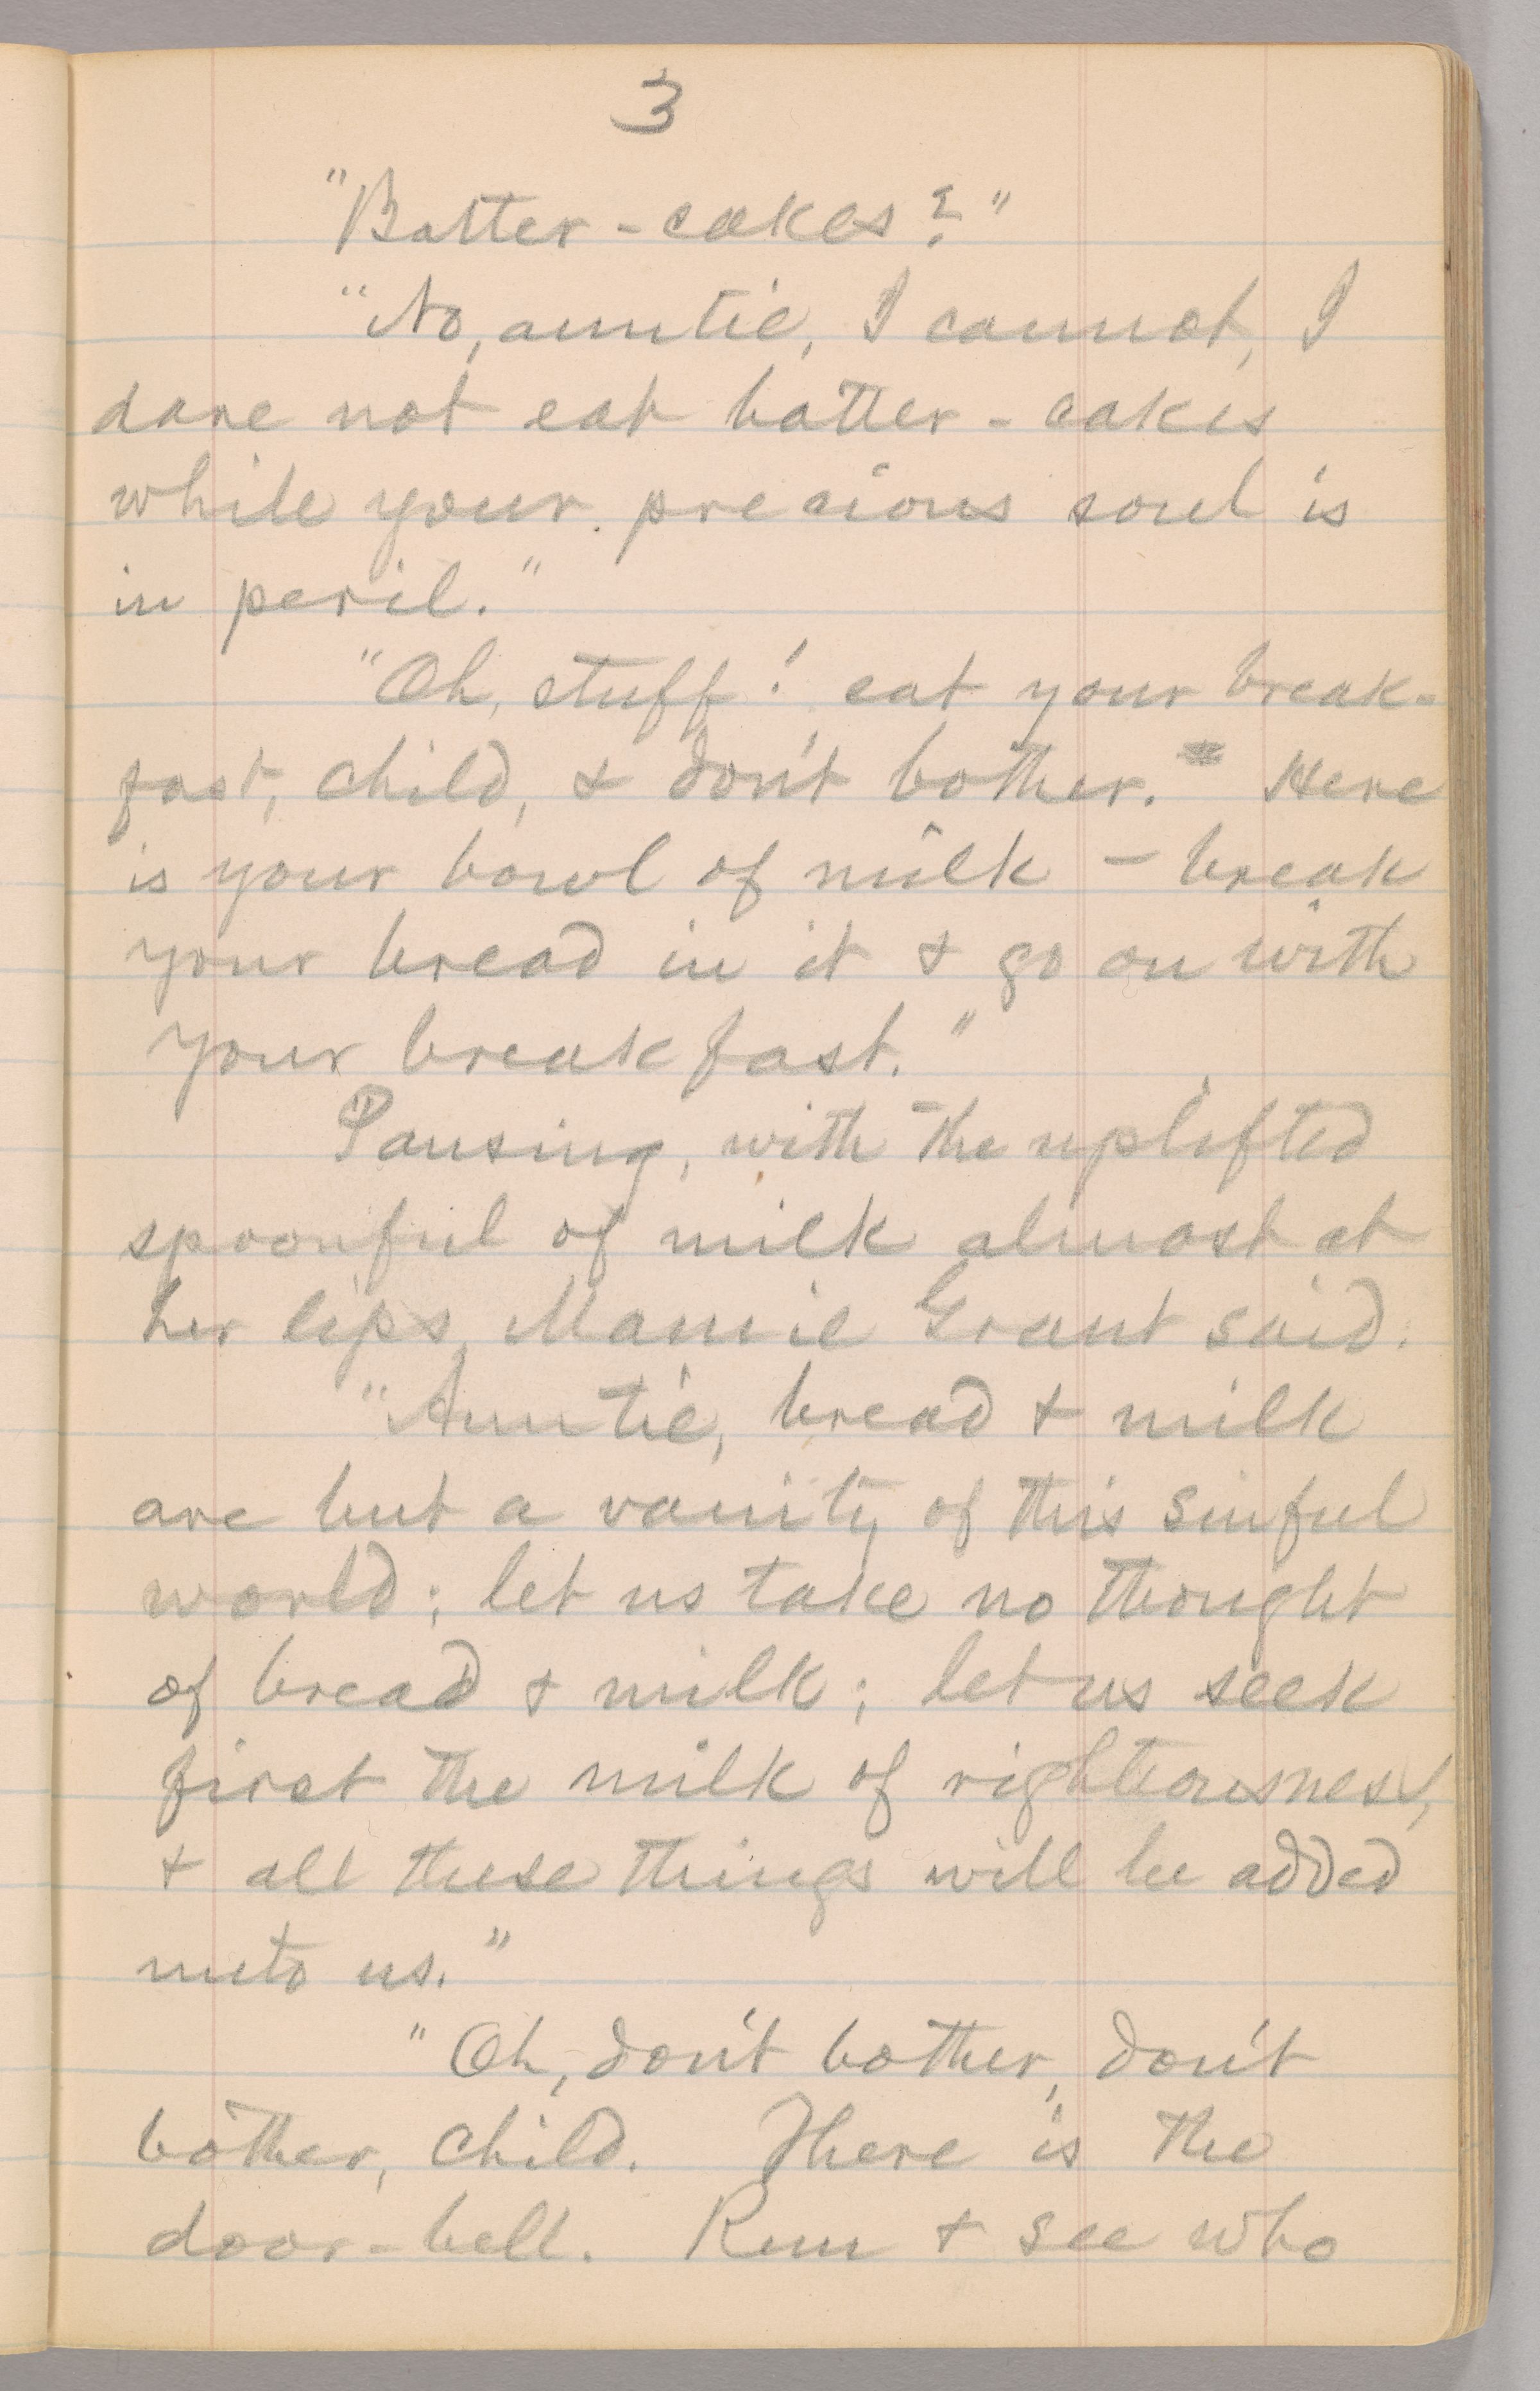 3
"Batter-cakes?"
"No, auntie, I cannot, I
dare not eat batter-cakes
while your precious soul is
in peril."
"Oh, stuff! eat your break-
fast, child, & don't bother. Here
is your bowl of milk — break
your bread in it & go on with
your breakfast."
Pausing, with the uplifted
spoonful of milk almost at
her lips, Mamie Grant said:
"Auntie, bread & milk
are but a vanity of this sinful
world; let us take no thought
of bread & milk; let us seek
first the milk of righteousness,
& all these things will be added
unto us."
"Oh, don't bother, don't
bother, child. There is the
door-bell. Run & see who